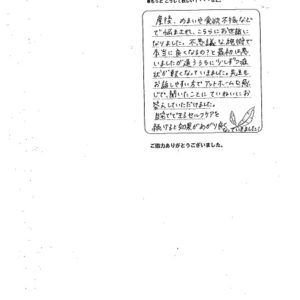 産後、めまいや食欲不振などで悩まされ、こちらにお世話に
なりました。不思議な施術で
本当に良くなるの?と最初は思
いましたが通ううちに少しずつ症
状が軽くなっていきました。先生も
お話しやすい方でアットホームな感
じで、聞いたことにていねいにお
答えしていただけました。
自宅でできるセルフケアを
続けると効果があがり
っていきました!
ご協力ありがとうございました。